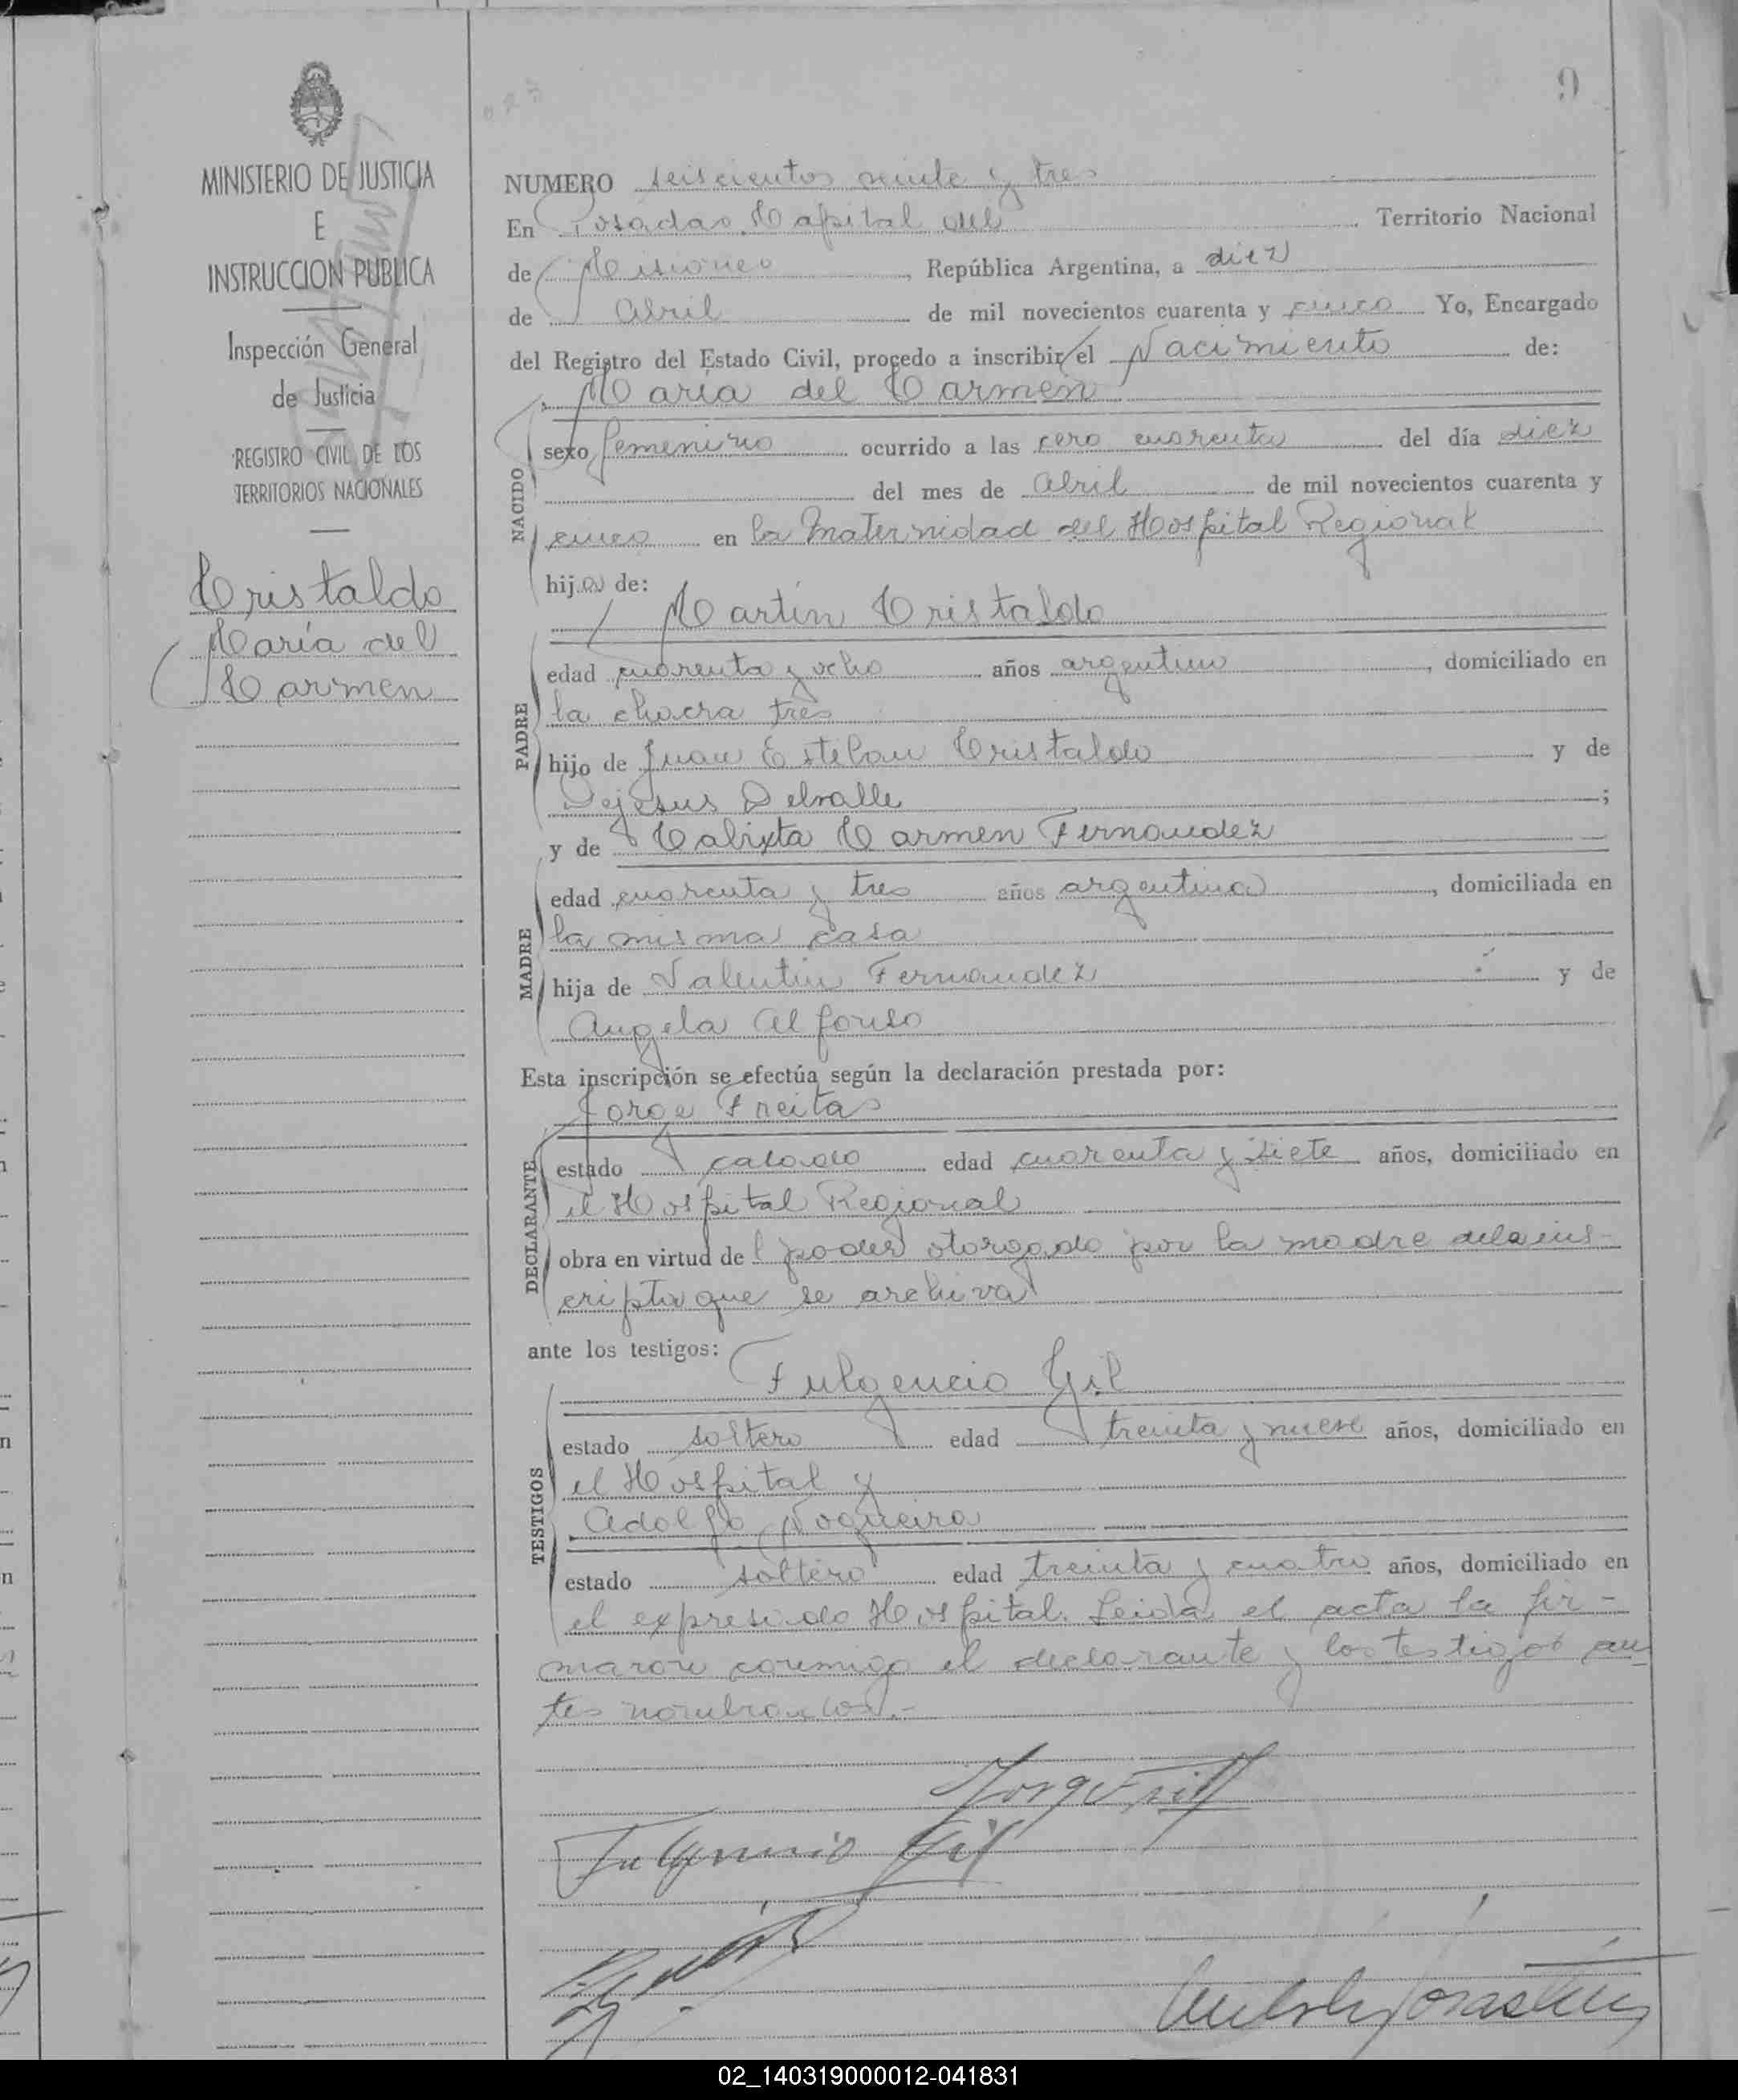 9
023
MINISTERIO DE JUSTICIA
E
INSTRUCCION PUBLICA
Inspección General
de Justicia
REGISTRO CIVIL DE LOS
TERRITORIOS NACIONALES
Cristaldo
María del
Carmen
NUMERO seiscientos veinte y tres
En Posadas, Capital del Territorio Nacional
de Misiones, República Argentina, a diez
de Abril de mil novecientos cuarenta y cinco Yo, Encargado
del Registro del Estado Civil, procedo a inscribir el Nacimiento de:
María del Carmen
NACIDO
sexo femenino ocurrido a las cero cuarenta del día diez
del mes de Abril de mil novecientos cuarenta y
cinco en la Maternidad del Hospital Regional
hija de:
Martín Cristaldo
PADRE
edad cuarenta y ocho años argentino, domiciliado en
la chacra tres
hijo de Juan Esteban Cristaldo y de
Dejesus Delvalle;
y de Calixta Carmen Fernandez
MADRE
edad cuarenta y tres años argentina, domiciliada en
la misma casa
hija de Valentin Fernandez y de
Angela Alfonso
Esta inscripción se efectúa según la declaración prestada por:
Jorge Freitas
DECLARANTE
estado casado edad cuarenta y siete años, domiciliado en
el Hospital Regional
obra en virtud del poder otorgado por la madre de la ins-
cripta que se archiva
ante los testigos:
Fulgencio Gil
TESTIGOS
estado soltero edad treinta y nueve años, domiciliado en
el Hospital y
Adolfo Nogueira
estado soltero edad treinta y cuatro años, domiciliado en
el expresado Hospital. Leida el acta la fir-
maron conmigo el declarante y los testigos an-
tes nombrados.-
Fulgencio Gil
02_140319000012-041831